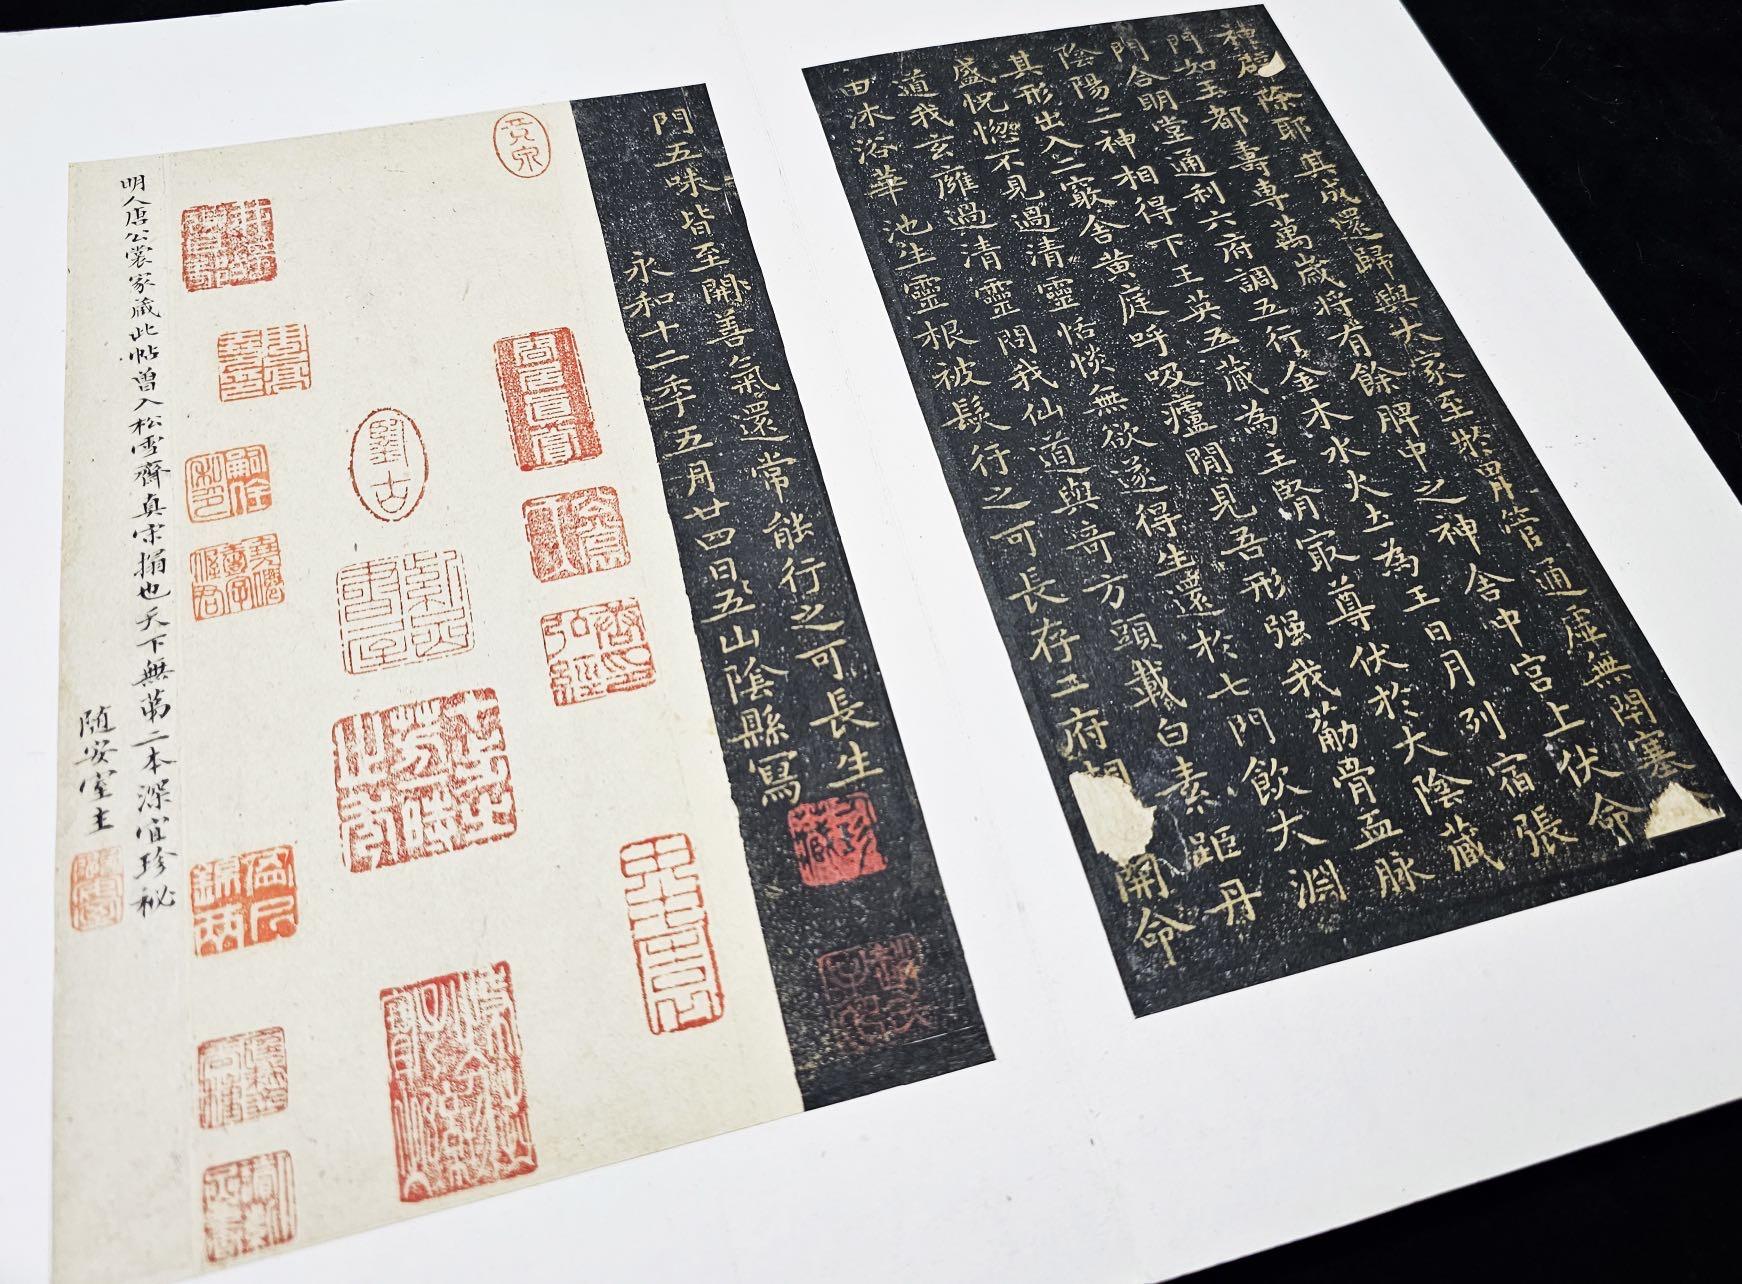 神辟除耶其成還歸與大家至於胃管通虛無閉塞
門如玉都壽專萬歲將有餘脾中之神舍中宮上伏命
門合明堂通利六府調五行金木水火土為王日月列宿張
陰陽二神相得下玉英五藏為主腎最尊伏於大陰藏
其形出入二竅舍黃庭呼吸廬間見吾形強我筋骨血脉
盛恍惚不見過清靈恬惔無欲遂得生還於七門飲大淵
道我玄廱過清靈問我仙道與奇方頭載白素距丹
田沐浴華池生靈根被髮行之可長存二府相開命
門五味皆至開善氣還常能行之可長生
永和十二年五月廿四日五山陰縣寫
鑒古
明人唐公裳家藏此帖曾入松雪齋真宋搨也天下無第二本深宜珍秘
隨安室主